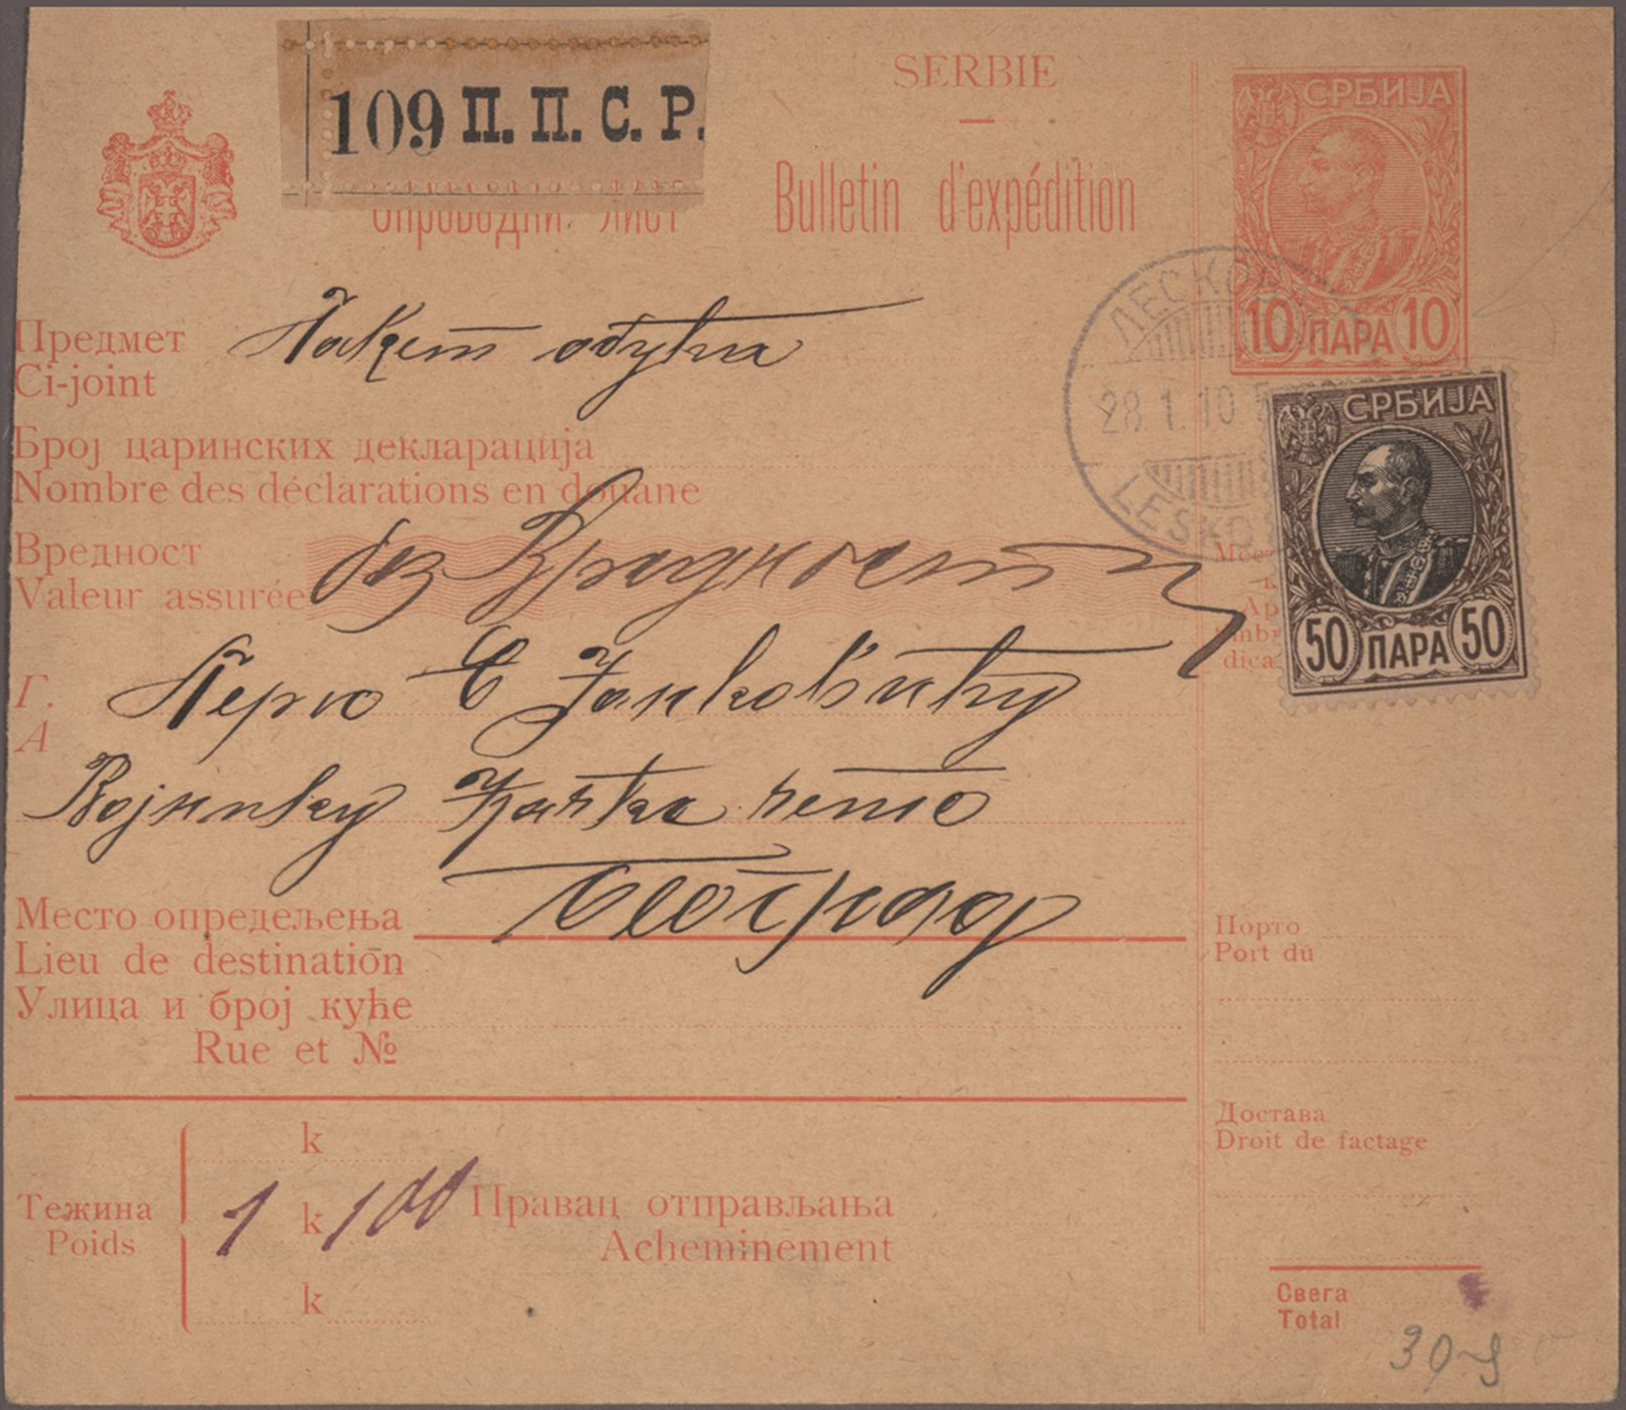 109 П. П. С. Р.
SERBIE
Bulletin d'expédition
СРБИЈА
10 ПАРА 10
ЛЕСКОВ
28.1.10
LESKO
Предмет Пакет обућа
Ci-joint
Број царинских декларација
Nombre des déclarations en douane
Вредност без Вредност
Valeur assurée
СРБИЈА
50 ПАРА 50
Г.
А
Јанковићу
Ђачка чета
Београд
Место опредељења
Lieu de destination
Улица и број куће
Rue et №
Порто
Port dû
Достава
Droit de factage
Тежина
Poids
k
1 k 100
k
Правац отправљања
Acheminement
Свега
Total